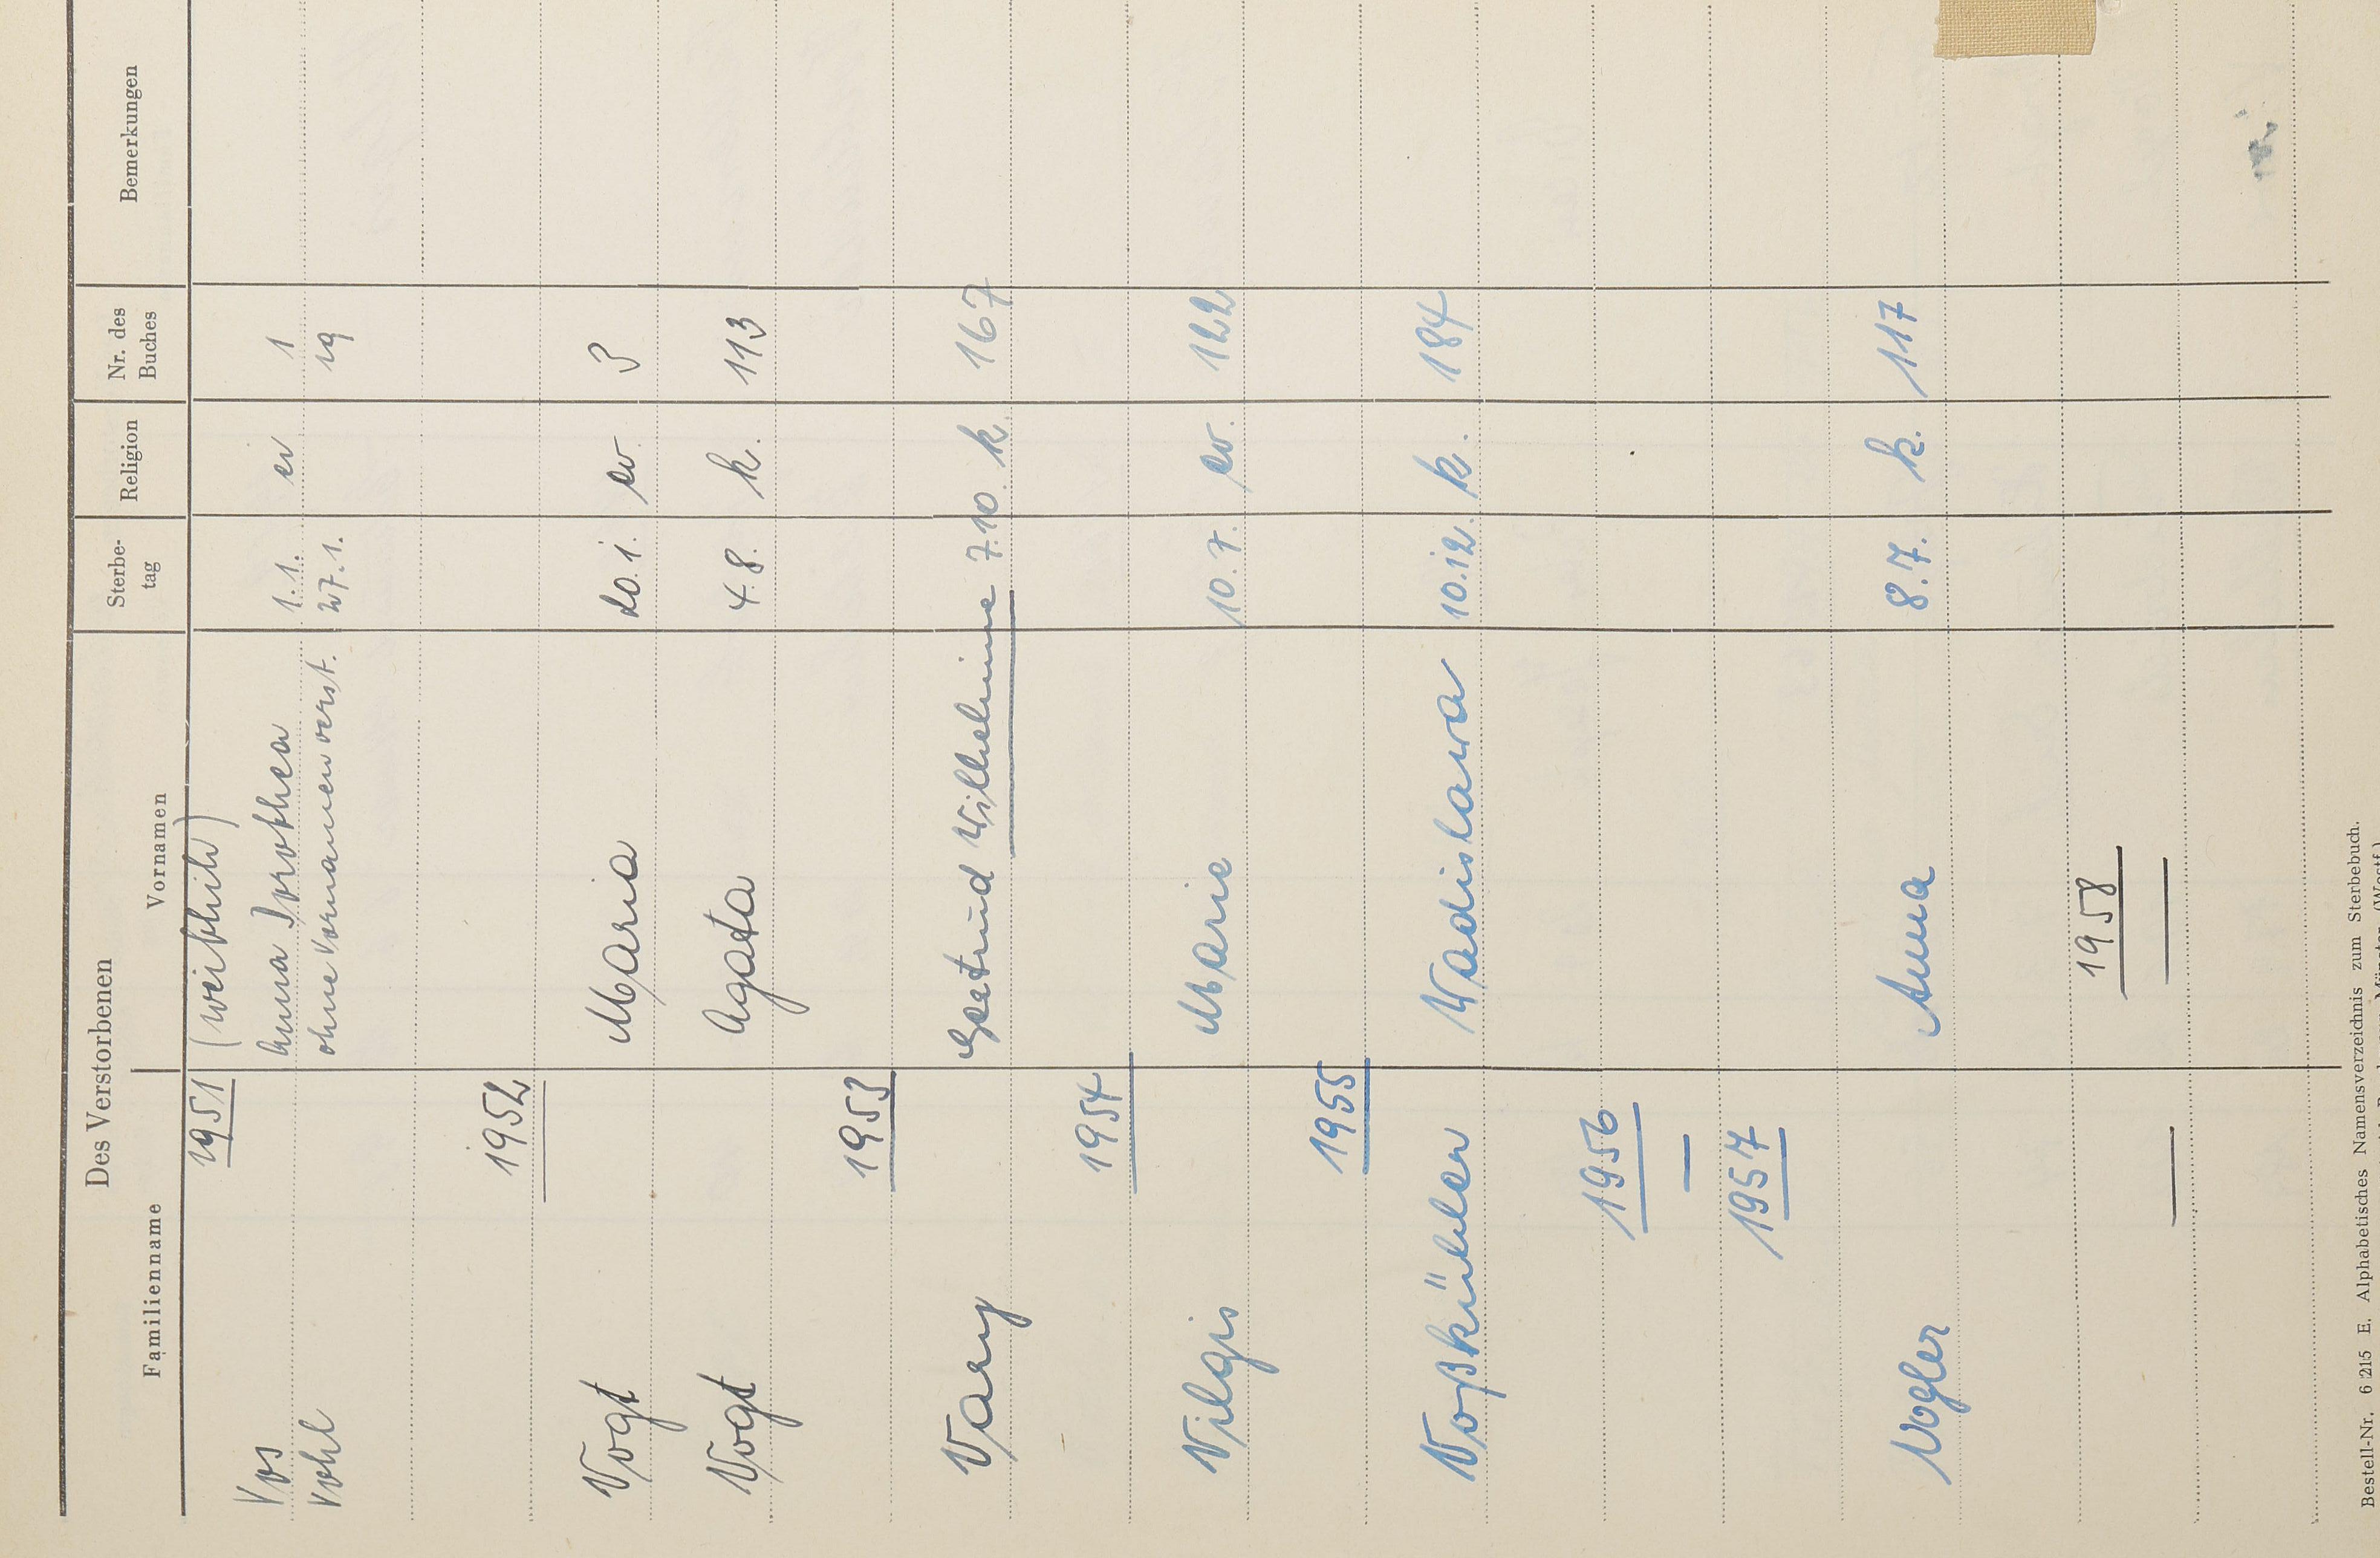 Des Verstorbenen
Familienname Vornamen Sterbe-tag Religion Nr. des Buches Bemerkungen
1951 (weiblich)
Vos Anna Dorothea 1.1. ev 1
Vohl ohne Vornamen verst. 27.1. 19
1952
Vogt Maria 20.1. ev. 3
Vogt Agata 4.8. k. 113
1953
Vary Gertrud Wilhelmine 7.10. k. 167
1954
Vilgis Marie 10.7. ev. 122
1955
Voßkühler Wadislawa 10.12. k. 184
1956
—
1957
Vogler Anna 8.7. k. 117
1958
— —
Bestell-Nr. 6 215 E. Alphabetisches Namensverzeichnis zum Sterbebuch.